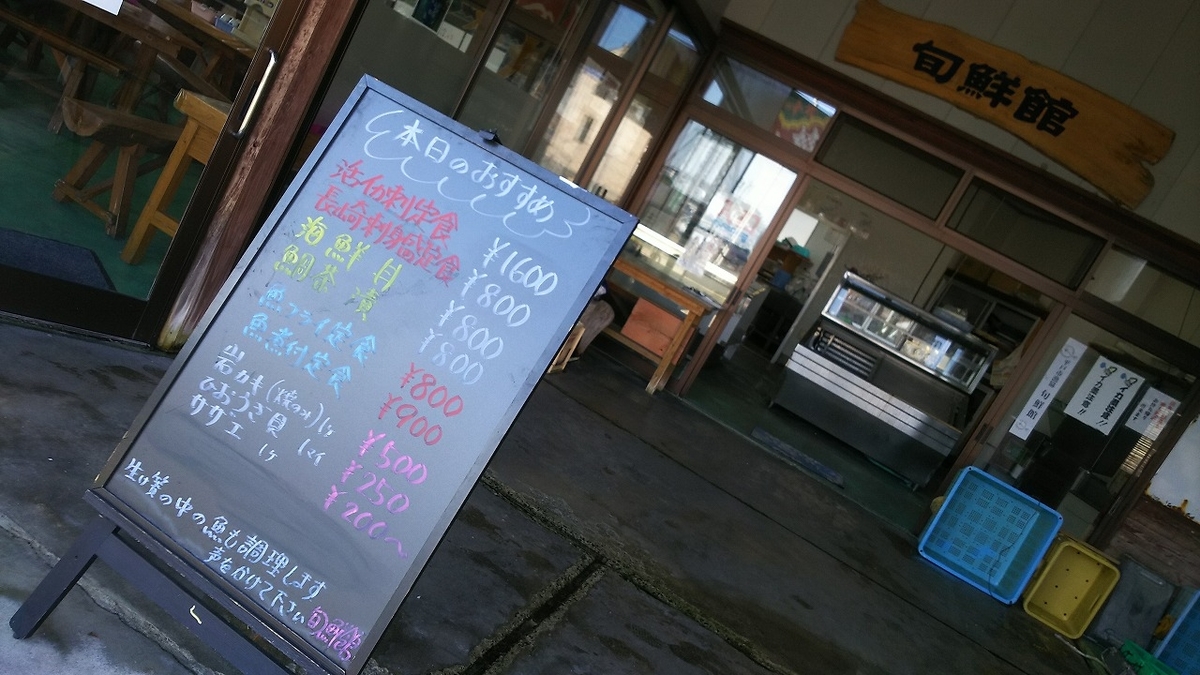 旬鮮館
本日のおすすめ
活イカ刺定食 ¥1600
長崎刺身盛定食 ¥800
海鮮丼 ¥800
鯛茶漬 ¥800
魚フライ定食 ¥800
魚煮付定食 ¥900
岩カキ(焼のみ)1ヶ ¥500
ひおうぎ貝 1マイ ¥250
サザエ 1ヶ ¥200〜
生け簀の中の魚も調理します
声をかけて下さい 旬鮮館
旬鮮館